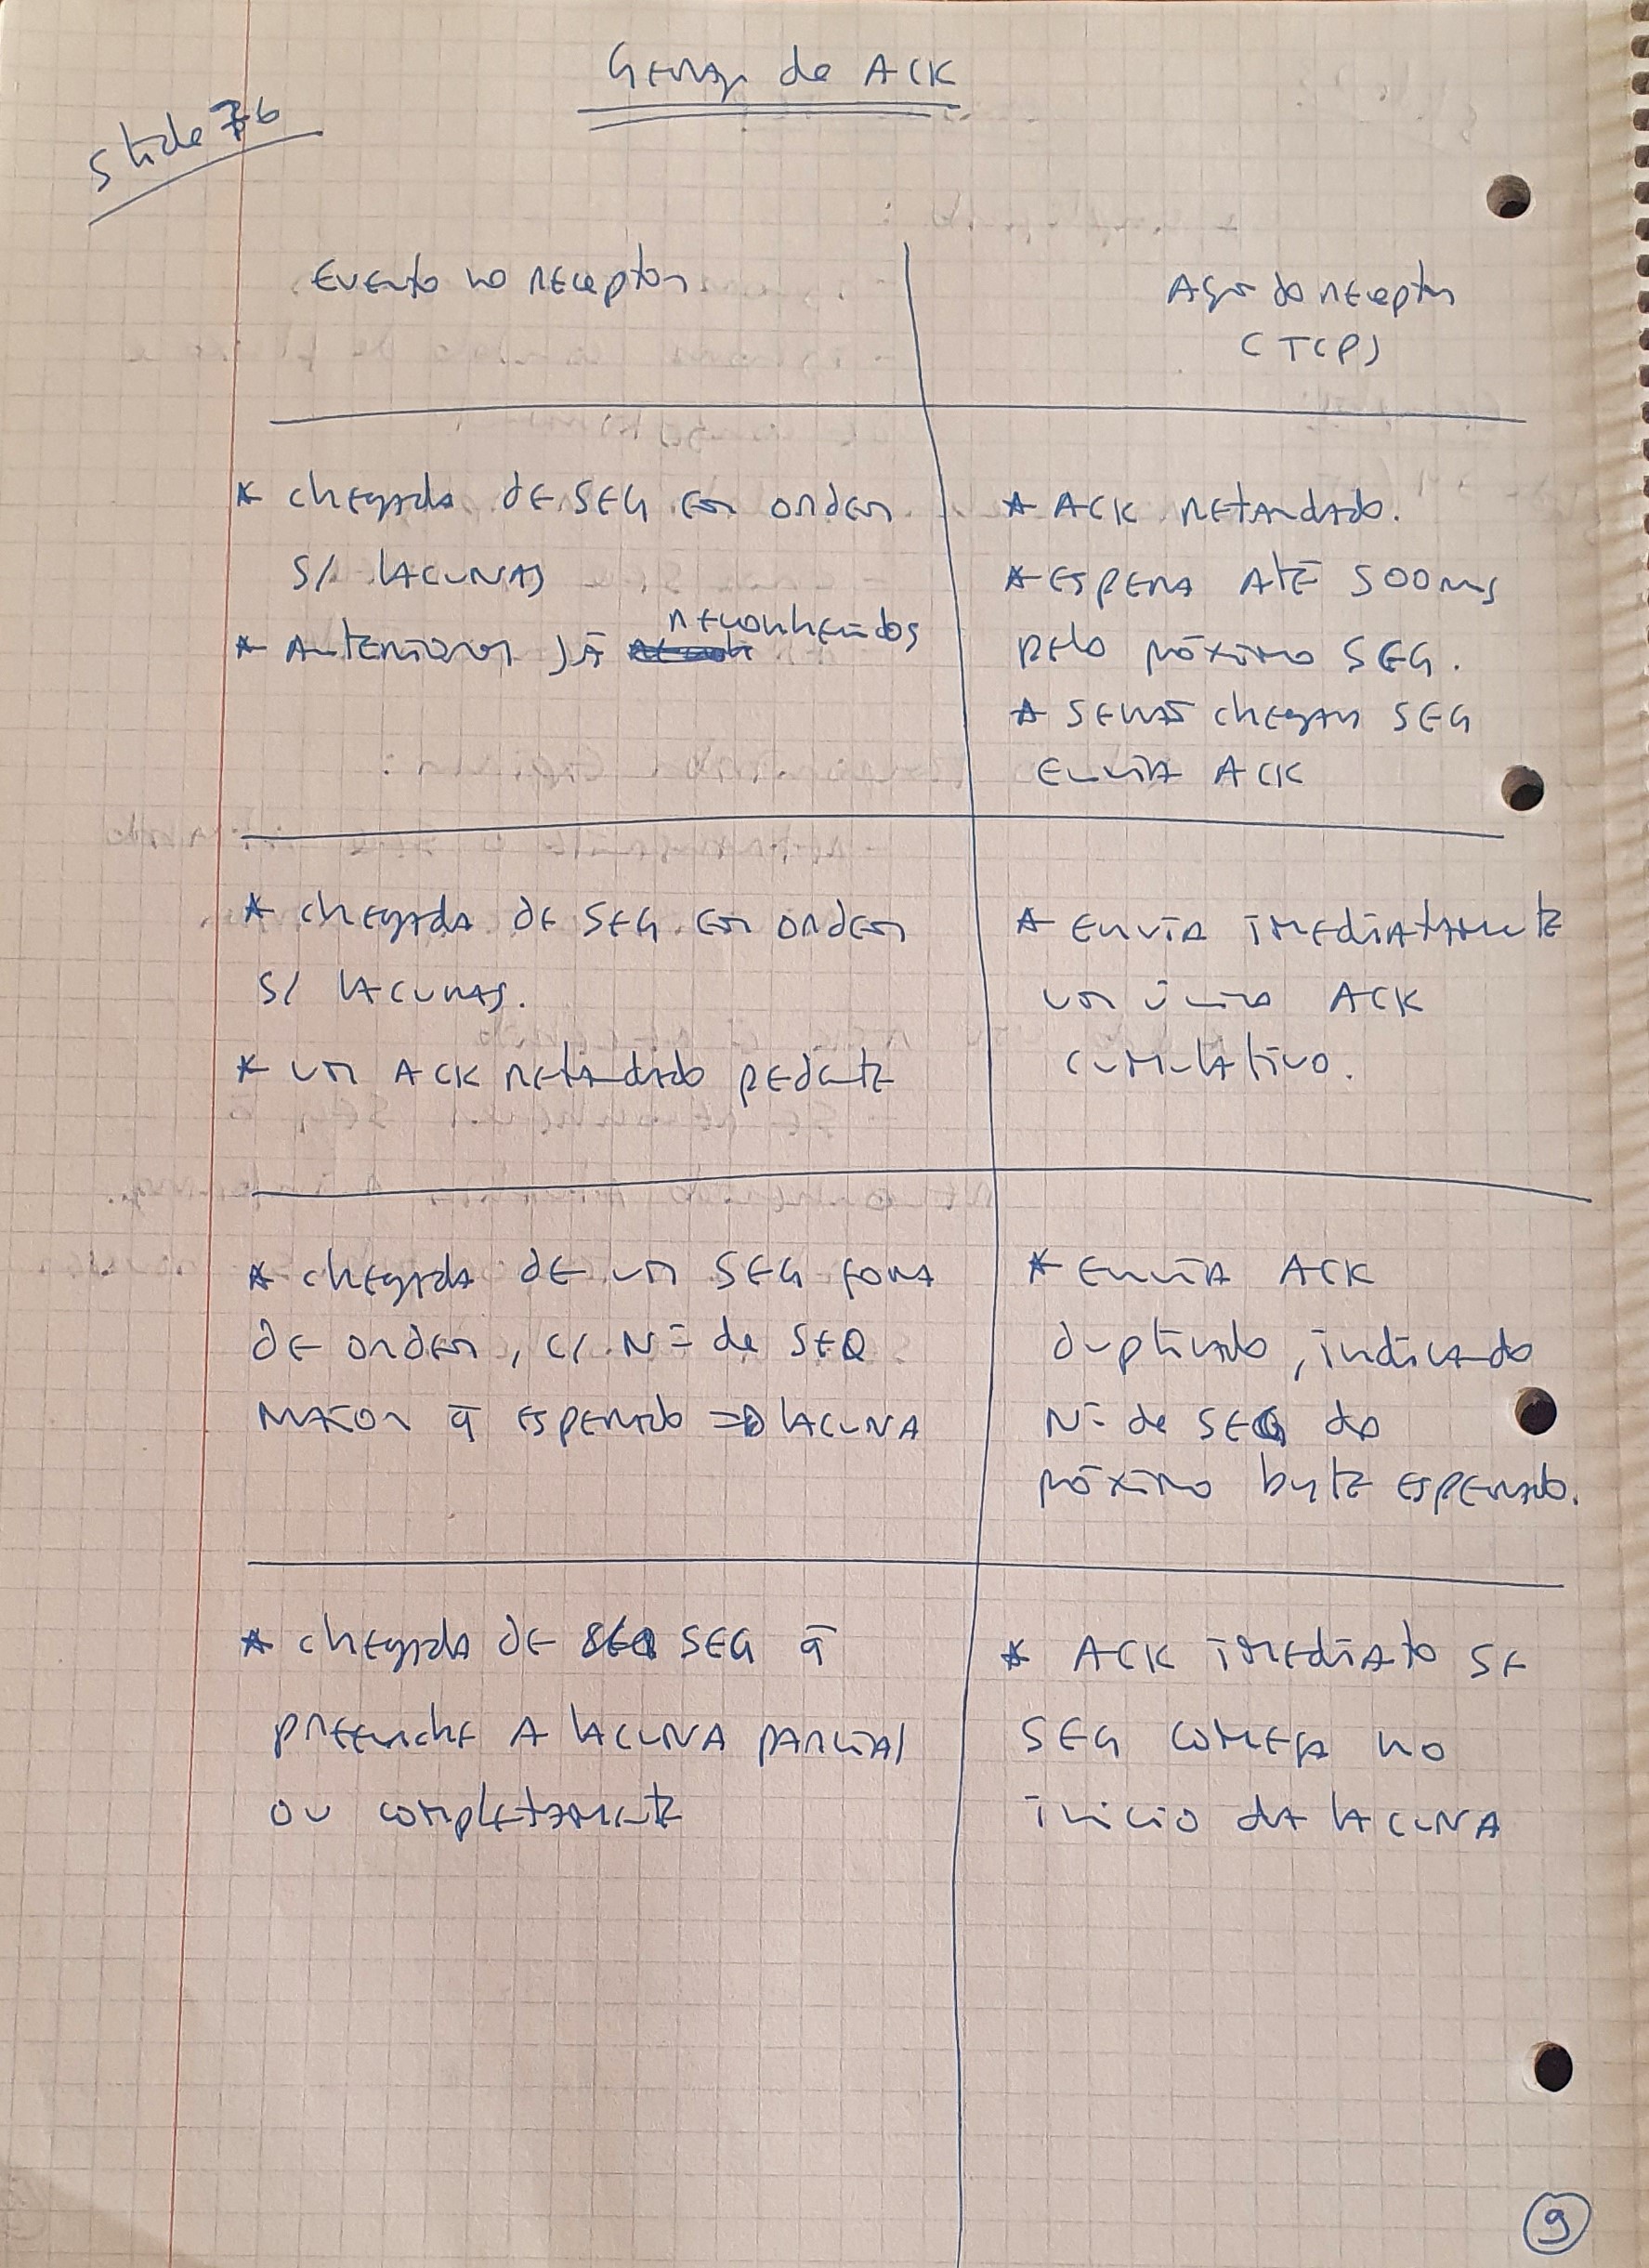 Geração de ACK
Slide 76
Evento no receptor
Ação do receptor
(TCP)
* chegada de SEG em ordem
s/ lacunas
* Anteriores já reconhecidos
* ACK retardado.
* espera até 500ms
pelo próximo SEG.
* senão chegar SEG
envia ACK
* chegada de SEG em ordem
s/ lacunas.
* um ACK retardado pedente
* envia imediatamente
um único ACK
cumulativo.
* chegada de um SEG fora
de ordem, c/ Nº de SEQ
maior q̄ esperado => lacuna
* envia ACK
duplicado, indicado
Nº de SEQ do
próximo byte esperado.
* chegada de SEG q̄
preenche a lacuna parcial
ou completamente
* ACK imediato se
SEG começa no
início da lacuna
9